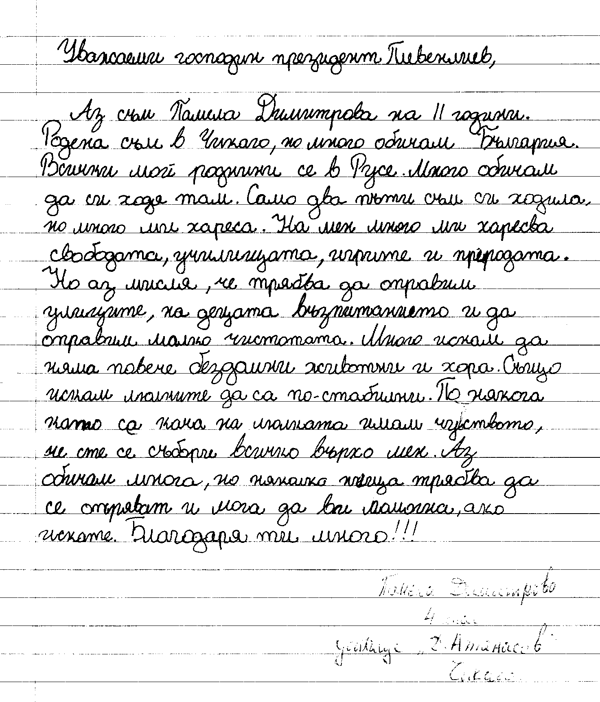 Уважаеми господин президент Плевенлиев,
Аз съм Памела Димитрова на 11 години.
Родена съм в Чикаго, но много обичам България.
Всички мой роднини се в Русе. Много обичам
да си ходя там. Само два пъти съм си ходила,
но много ми хареса. На мен много ми харесва
свободата, училищата, игрите и природата.
Но аз мисля, че трябва да оправим
улиците, на децата възпитанието и да
оправим малко чистотата. Много искам да
няма повече бездомни животни и хора. Също
искам люлките да са по-стабилни. По някога
като са кача на люлката имам чувството,
че сте се съборы всичко върхо мен. Аз
обичам многа, но няколко неща трябва да
се опряват и мога да ви помогна, ако
искате. Благодаря ти много!!!
Памела Димитрова
4 клас
училище "Д. Атанасов"
Чикаго